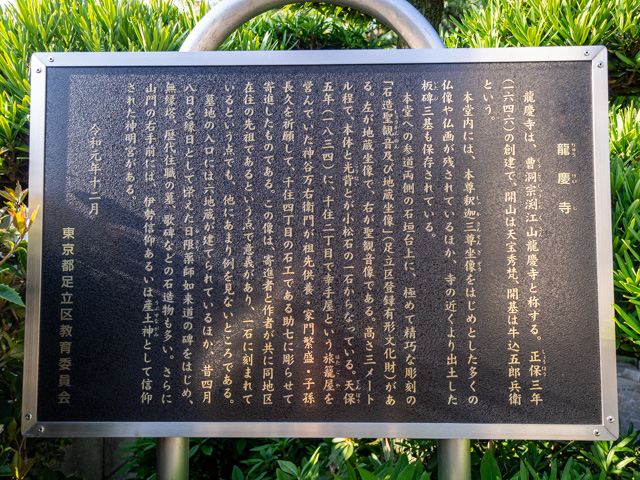 龍慶寺
龍慶寺は、曹洞宗渕江山龍慶寺と称する。正保三年
(一六四六)の創建で、開山は天室秀梵、開基は牛込五郎兵衛
という。
本堂内には、本尊釈迦三尊坐像をはじめとした多くの
仏像や仏画が残されているほか、寺の近くより出土した
板碑三基も保存されている。
本堂への参道両側の石垣台上に、極めて精巧な彫刻の
「石造聖観音及び地蔵坐像」(足立区登録有形文化財)があ
る。左が地蔵坐像で、右が聖観音像である。高さ三メート
ル程で、本体と光背とが小松石の一石からなっている。天保
五年(一八三四)に、千住二丁目で幸手屋という旅籠屋を
営んでいた神谷万右衛門が祖先供養・家門繁盛・子孫
長久を祈願して、千住四丁目の石工である助七に彫らせて
寄進したものである。この像は、寄進者と作者が共に同地区
在住の先祖であるという点で意義があり、一石に刻まれて
いるという点でも、他にあまり例を見ないところである。
墓地の入り口には六地蔵が建てられているほか、昔四月
八日を縁日として栄えた日限薬師如来道の碑をはじめ、
無縁塔、歴代住職の墓、歌碑などの石造物も多い。さらに
山門の右手前には、伊勢信仰あるいは産土神として信仰
された神明宮がある。
令和元年十二月
東京都足立区教育委員会